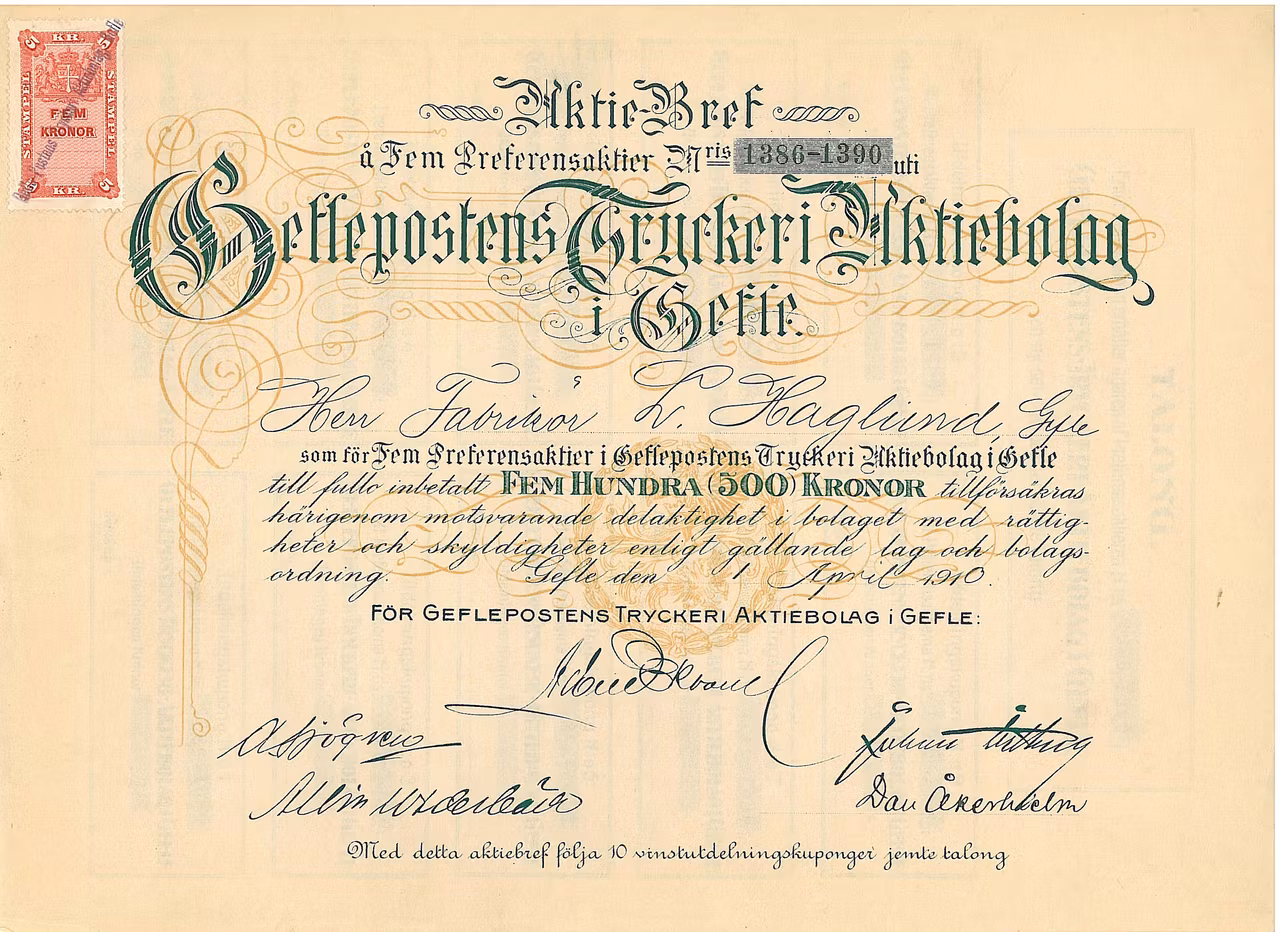 5 KR. 5
STAMPEL
STAMPEL
FEM
KRONOR
5 KR. 5
Aktie-Bref
å Fem Preferensaktier Nris 1386-1390 uti
Geflepostens Tryckeri Aktiebolag
i Gefle.
Herr Fabrikör L. Haglund, Gefle
som för Fem Preferensaktier i Geflepostens Tryckeri Aktiebolag i Gefle
till fullo inbetalt FEM HUNDRA (500) KRONOR tillförsäkras
härigenom motsvarande delaktighet i bolaget med rättig-
heter och skyldigheter enligt gällande lag och bolags-
ordning. Gefle den 1 April 1910.
FÖR GEFLEPOSTENS TRYCKERI AKTIEBOLAG i GEFLE:
A Sjögren
Albin
Johan
Dan Åkerhielm
Med detta aktiebref följa 10 vinstutdelningskuponger jemte talong